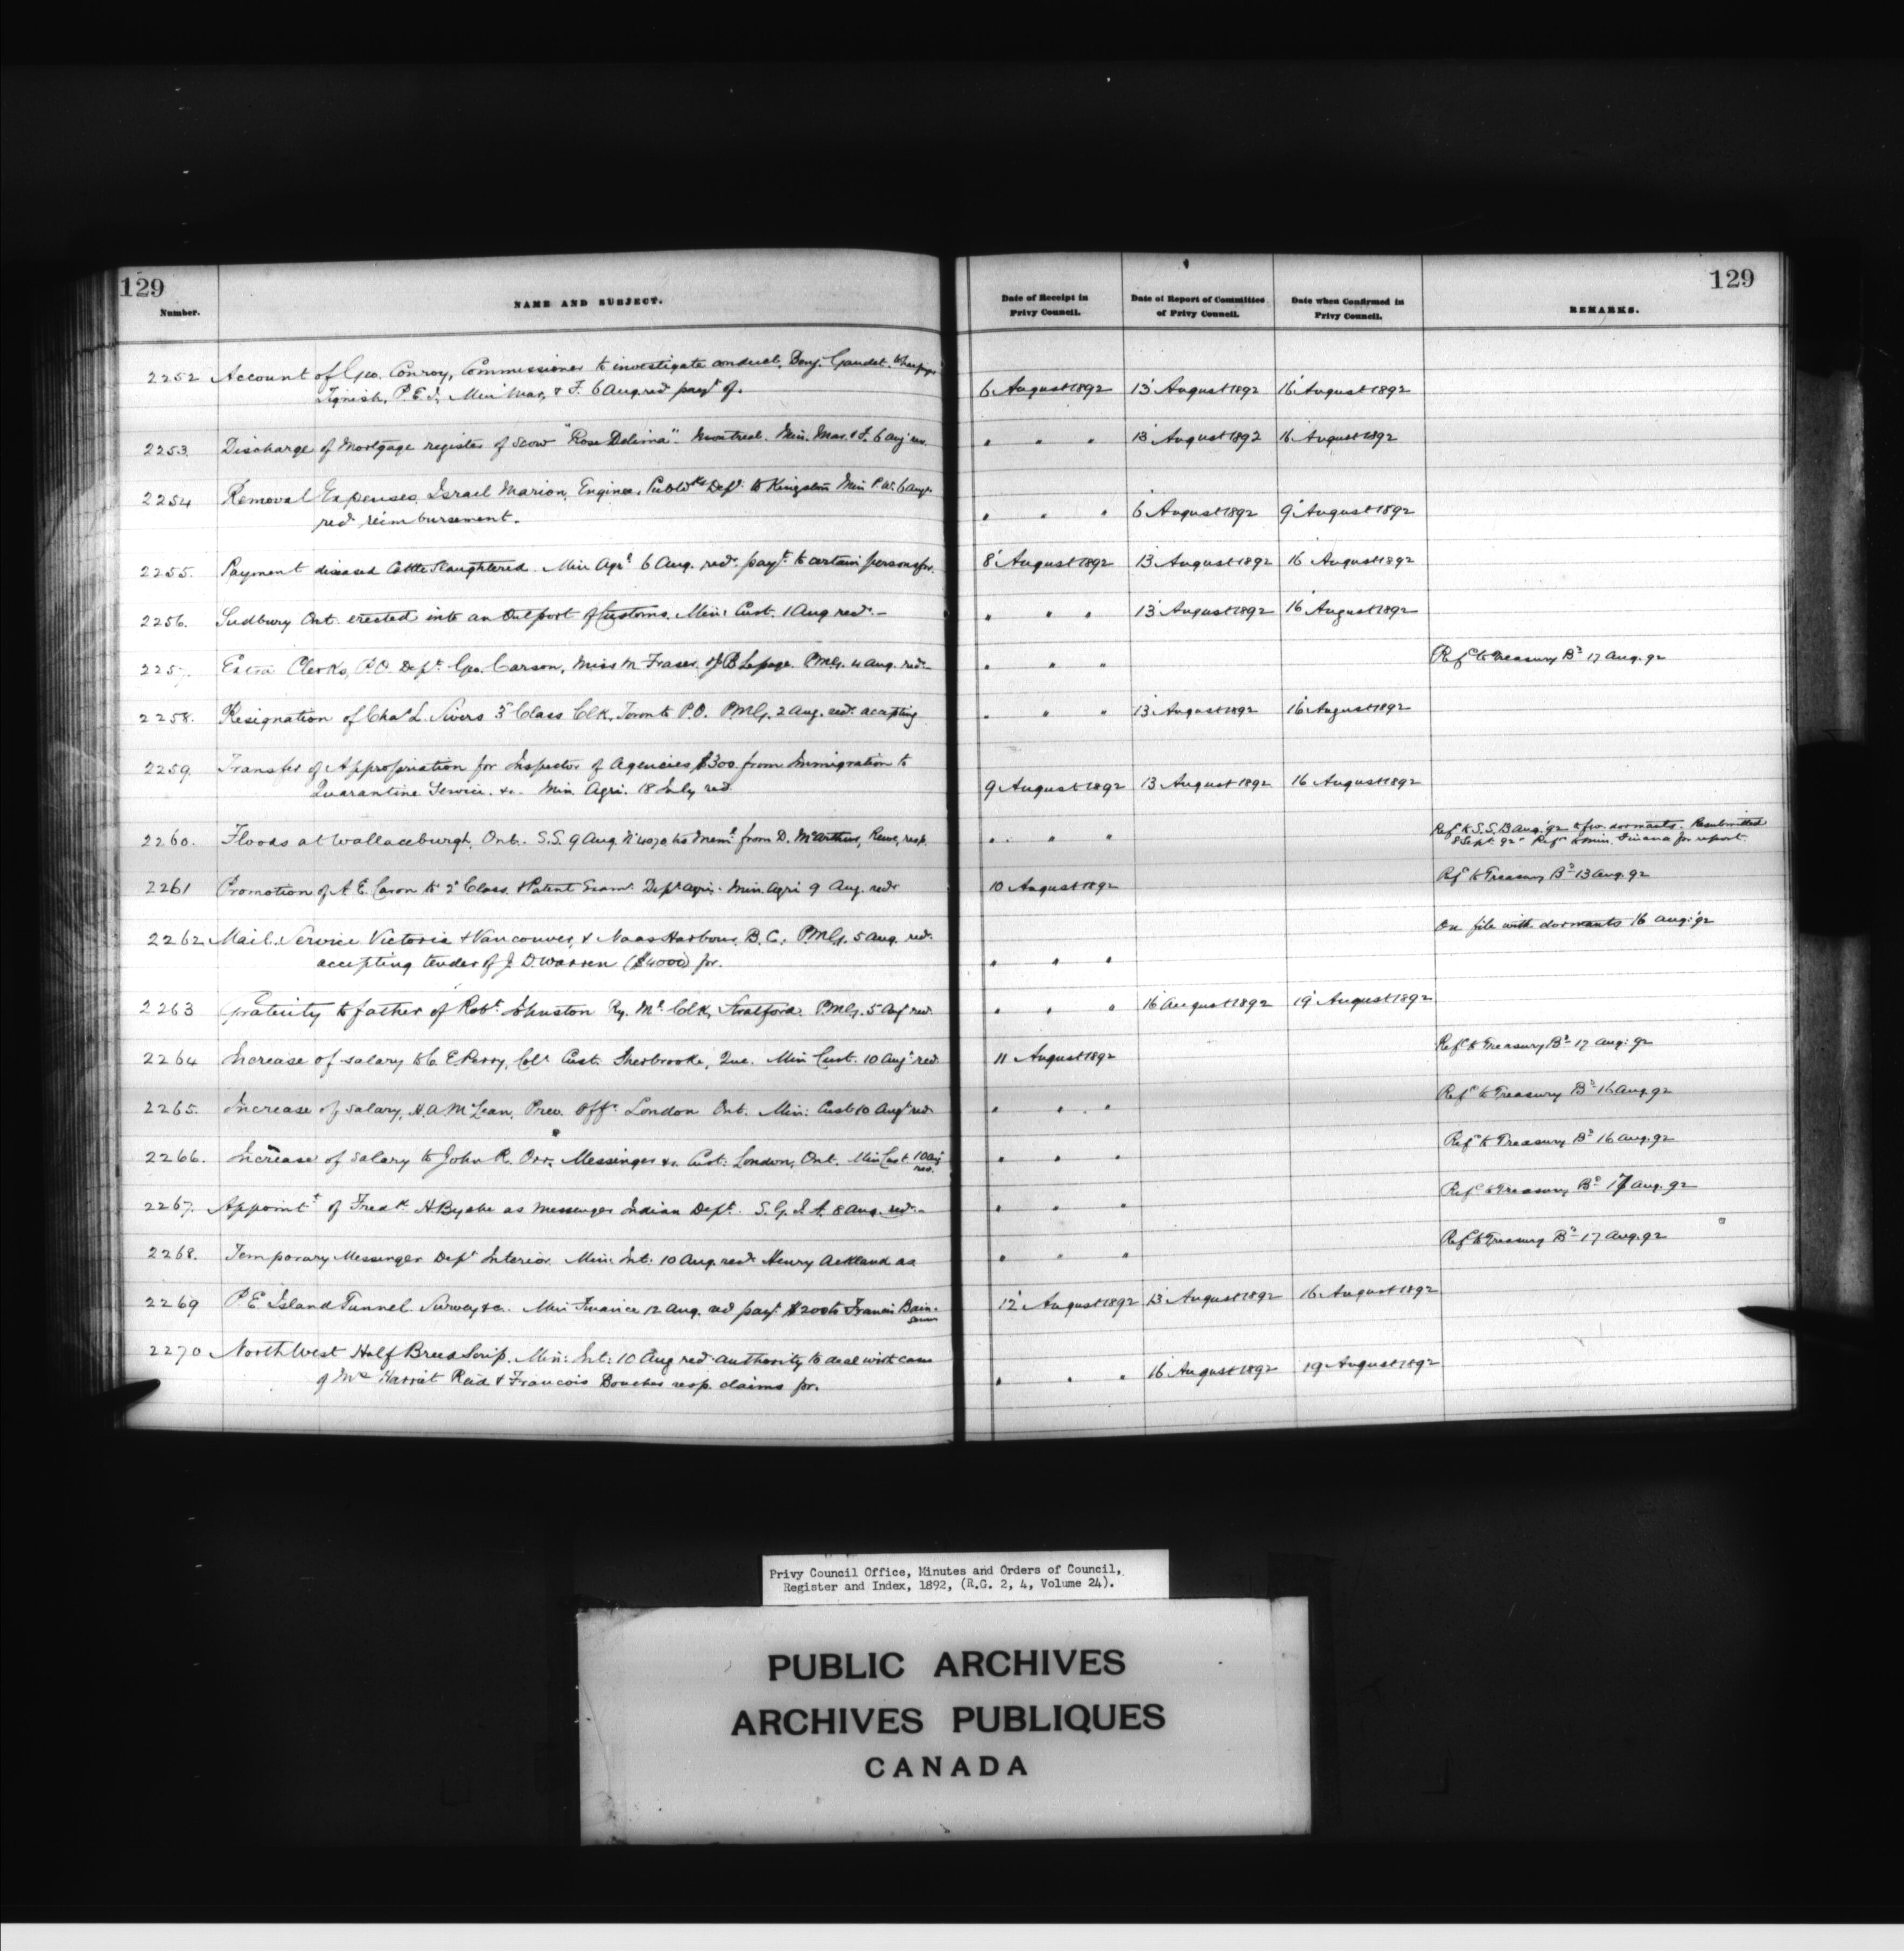 129
129
Number.
NAME AND SUBJECT.
Date of Receipt in
Privy Council.
Date of Report of Committee
of Privy Council.
Date when Confirmed in
Privy Council.
REMARKS.
2252 Account of Geo. Conroy, Commissioner to investigate conduct, Benj. Gaudet
Tignish, P.E.I. Min Mar, & F. 6 Aug. red payt of.
6 August 1892 13 August 1892 16 August 1892
2253. Discharge of Mortgage register of Scow "Rose Delima" Montreal. Min. Mar. & F. 6 Aug
" " " 13 August 1892 16 August 1892
2254 Removal Expenses, Israel Marion, Engineer, Dept. to Kingston Min P.W. 6 Aug.
red. reimbursement.
" " " 6 August 1892 9 August 1892
2255. Payment diseased Cattle Slaughtered. Min Agre 6 Aug. red. payt. to certain persons for.
8 August 1892 13 August 1892 16 August 1892
2256. Sudbury Ont. erected into an Outport of Customs. Min: Cust. 1 Aug red. -
" " " 13 August 1892 16 August 1892
2257. Extra Clerks, P.O. Dept. Geo. Carson, Miss M. Fraser, & J B Lepage. PMG. 4 Aug. red. -
" " " Refd to Treasury Bd 17 Aug. 92
2258. Resignation of Chas L. Sivers 3d Class Clk, Toronto P.O. PMG. 2 Aug. red. accepting
" " " 13 August 1892 16 August 1892
2259. Transfer of Appropriation for Inspector of Agencies, $300 from Immigration to
Quarantine Service. &c. Min Agri. 18 July red
9 August 1892 13 August 1892 16 August 1892
2260. Floods at Wallaceburgh, Ont. S.S. 9 Aug No 4070 tts Memt from D. McArthur, Reeve, resp.
" " " Refd to S.S. 13 Aug. 92 dormants. Resubmitted
8 Sept. 92 - Refd to Min. Finance for report
2261 Promotion of A E. Caron to 2d Class & Patent Exam. Dept Agri. Min. Agri 9 Aug. red
10 August 1892 Refd to Treasury Bd 13 Aug. 92
2262 Mail Service Victoria & Vancouver, & Naas Harbour, B.C., PMG. 5 Aug. red.
accepting tender of J. D. Warren ($4000) for.
" " " On file with dormants 16 Aug: 92
2263 Gratuity to father of Robt. Johnston Ry. Ml Clk, Stratford. PMG. 5 Aug red
" " " 16 August 1892 19 August 1892
2264 Increase of salary to C. E. Perry, Colr Cust. Sherbrooke, Que. Min Cust. 10 Aug. red
11 August 1892 Refd to Treasury Bd - 17 Aug: 92
2265. Increase of salary, H. A McLean, Prev. Offr. London Ont. Min: Cust 10 Aug red.
" " " Refd to Treasury Bd 16 Aug. 92
2266. Increase of salary to John R. Orr, Messenger &c. Cust: London, Ont. Min Cust 10 Aug
red.
" " " Refd to Treasury Bd 16 Aug. 92
2267. Appointt of Fredk. H Byshe as Messenger Indian Dept. S. G. I. A. 8 Aug. red. -
" " " Refd to Treasury Bd - 17 Aug. 92
2268. Temporary Messenger Dept Interior Min: Int: 10 Aug. red Henry Ackland as
" " " Refd to Treasury Bd - 17 Aug. 92
2269 P. E. Island Tunnel. Survey &c. Min Finance 12 Aug. red payt $200 to Francis Bain -
12 August 1892 13 August 1892 16 August 1892
2270 North West Half Breed Scrip. Min: Int: 10 Aug red authority to deal with case
of Mrs Harriet Reid & Francois Boucher resp. claims for.
" " " 16 August 1892 19 August 1892
Privy Council Office, Minutes and Orders of Council,
Register and Index, 1892, (R.G. 2, 4, Volume 24).
PUBLIC ARCHIVES
ARCHIVES PUBLIQUES
CANADA